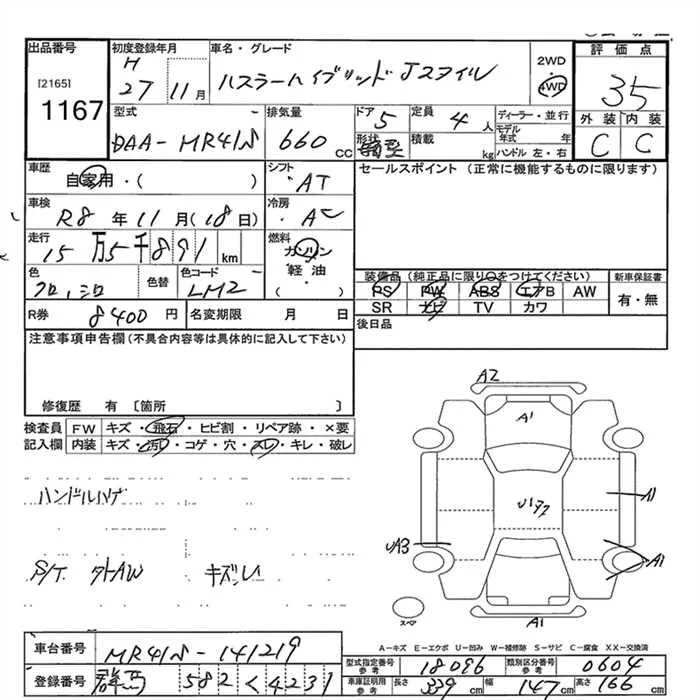 出品番号 初度登録年月 車名・グレード 2WD 評価点
[2165] H 27 11月 ハスラーハイブリッド Jスタイル 4WD 35
1167
型式 排気量 ドア 定員 ディーラー・並行 外装 内装
DAA-MR41S 660 CC 5 4人 モデル年式 年 C C
形状 箱型 積載 kg ハンドル 左・右
車歴 自家用・( ) シフト AT セールスポイント (正常に機能するものに限ります)
車検 R8年11月(18日) 冷房 AC
走行 15万5千891km 燃料 ガソリン
軽油
( )
色 クロ,シロ 色替 色コード LM2
装備品(純正品に限り○をつけてください) 新車保証書
PS PW ABS エアB AW 有・無
SR ナビ TV カワ
R券 8400円 名変期限 月 日 後日品
注意事項申告欄(不具合内容等は具体的に記入して下さい)
修復歴 有 〔箇所 〕
検査員 FW キズ・飛石・ヒビ割・リペア跡・×要
記入欄 内装 キズ・汚れ・コゲ・穴・スレ・キレ・破レ
ハンドルハゲ
S/T. 外AW キズ
A2
A1
A1
UA3
A1
A1
スペア
A-キズ E-エクボ U-凹み W-補修跡 S-サビ C-腐食 XX-交換済
車台番号 MR41S-141219
型式指定番号 参考 18096 類別区分番号 参考 0604
登録番号 群馬 582 く 4231
車庫証明用 参考 長さ 339cm 幅 147cm 高さ 166cm